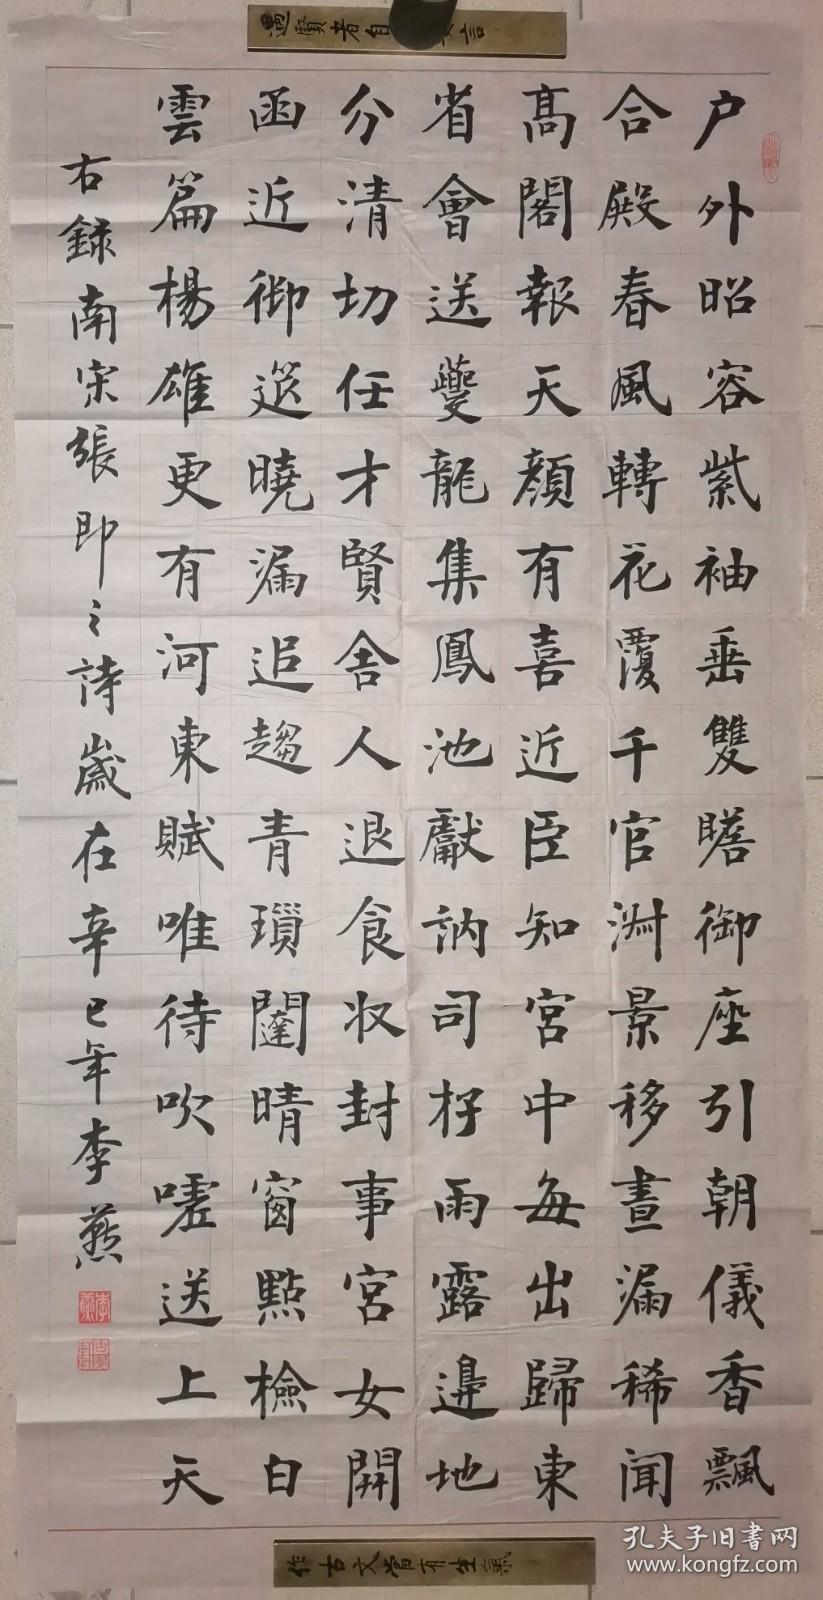 户外昭容紫袖垂雙瞻御座引朝儀香飄
合殿春風轉花覆千官淑景移晝漏稀聞
高閣報天顏有喜近臣知宮中每出歸東
省會送夔龍集鳳池獻訥司杍雨露邊地
分清切任才賢舍人退食收封事宮女開
函近御筵曉漏追趨青瑣闥晴窗點檢白
雲篇楊雄更有河東賦唯待吹噓送上天
右録南宋張即之詩歲在辛巳年李燕
遇賢者自言
作古文當有生氣
孔夫子旧书网
www.kongfz.com